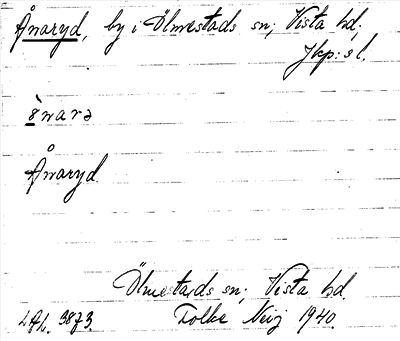 Ånaryd, by i Ölmestads sn; Vista hd;
Jkp: sl.
ònarə
Ånaryd
Ölmestads sn; Vista hd.
Folke Neij 1940.